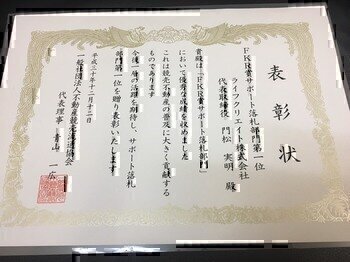 表彰状
FKR賞サポート落札部門第一位
ライフクリエイト株式会社
代表取締役 門松 実明 殿
貴殿は「FKR賞サポート落札部門」
において優秀な成績を収めました
これは競売不動産の普及に大きく貢献する
ものであります
今後一層の活躍を期待し、サポート落札
部門第一位を贈り表彰いたします
平成三十年十二月十二日
一般社団法人不動産競売流通協会
代表理事 青山 一広